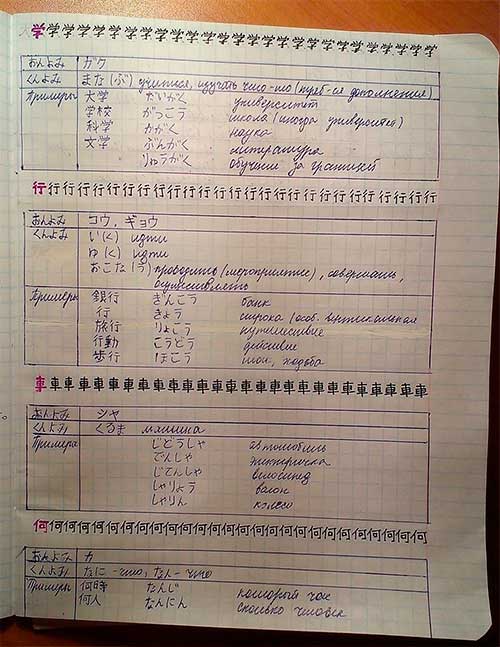 学学学学学学学学学学学学学学学学学学学学学学学学学学
おんよみ ガク
くんよみ まな(ぶ) учиться, изучать что-то (треб-ся дополнение)
Примеры 大学 だいがく университет
学校 がっこう школа (иногда университет)
科学 かがく наука
文学 ぶんがく литература
りゅうがく обучение за границей
行行行行行行行行行行行行行行行行行行行行行行行行行行
おんよみ コウ, ギョウ
くんよみ い(く) идти
ゆ(く) идти
おこな(う) проводить (мероприятие), совершать,
осуществлять
Примеры 銀行 ぎんこう банк
行 ぎょう строка (особ. вертикальная
旅行 りょこう путешествие
行動 こうどう действие
歩行 ほこう шаг, ходьба
車車車車車車車車車車車車車車車車車車車車車車車車車車
おんよみ シャ
くんよみ くるま машина
Примеры じどうしゃ автомобиль
でんしゃ электричка
じてんしゃ велосипед
しゃりょう вагон
しゃりん колесо
何何何何何何何何何何何何何何何何何何何何何何何何何何
おんよみ カ
くんよみ なに - что, なん - что
Примеры 何時 なんじ который час
何人 なんにん сколько человек